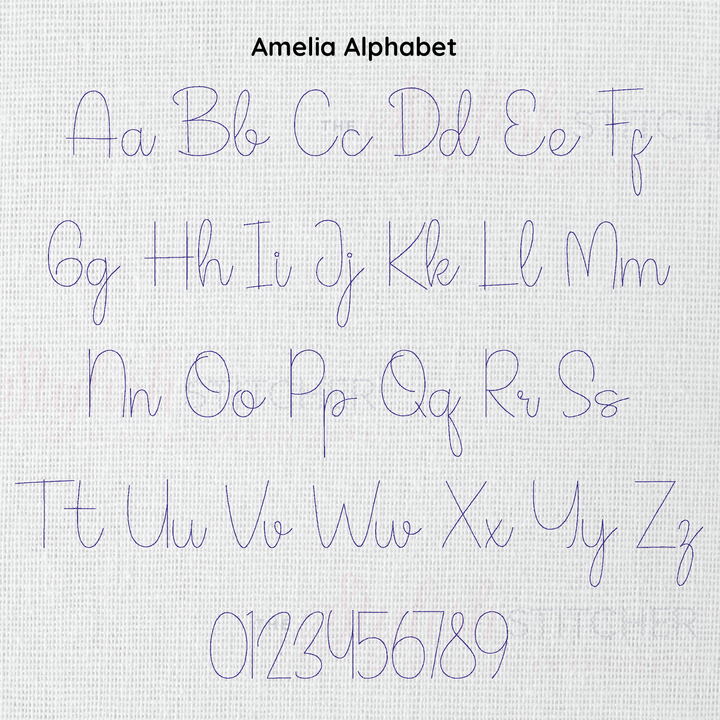 Amelia Alphabet
Aa Bb Cc Dd Ee Ff
Gg Hh Ii Jj Kk Ll Mm
Nn Oo Pp Qq Rr Ss
Tt Uu Vv Ww Xx Yy Zz
0123456789
STITCHER